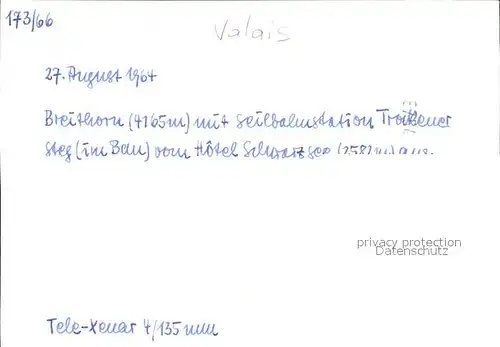 173/66
Valais
27. August 1964
Breithorn (4165m) mit Seilbahnstation Trockener
Steg (im Bau) vom Hôtel Schwarzsee (2582m) aus.
privacy protection
Datenschutz
Tele-Xenar 4/135mm